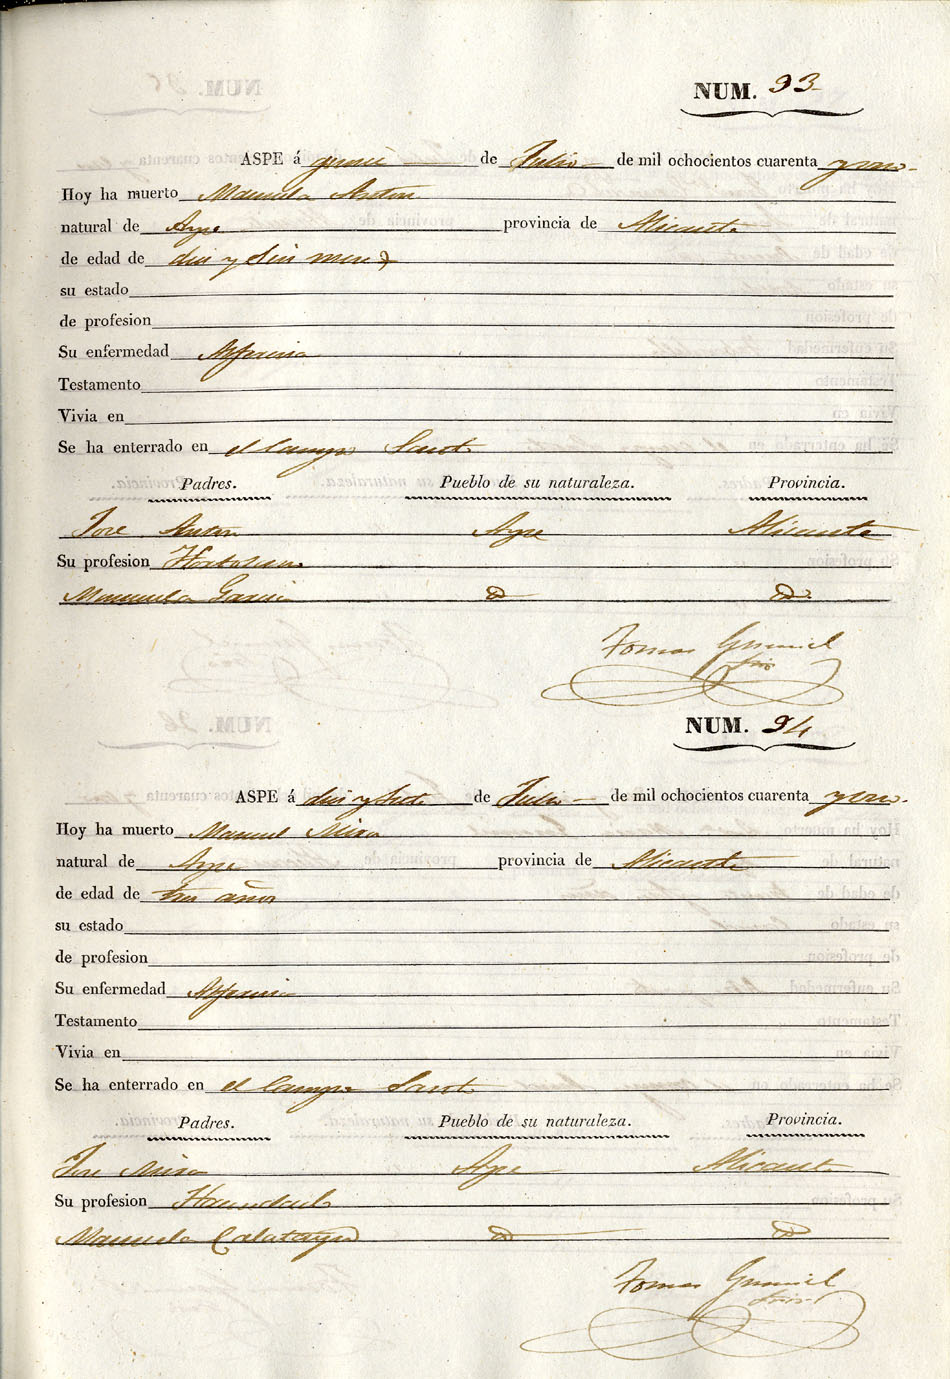 NUM. 93
ASPE á quince de Julio de mil ochocientos cuarenta y uno.
Hoy ha muerto Manuela Anton
natural de Aspe provincia de Alicante
de edad de diez y seis meses
su estado
de profesion
Su enfermedad Alferecia
Testamento
Vivia en
Se ha enterrado en el Campo Santo
Padres. Pueblo de su naturaleza. Provincia.
Jose Anton Aspe Alicante
Su profesion Hortelano
Manuela Garcia
Tomas Gumiel
NUM. 94
ASPE á diez y siete de Julio de mil ochocientos cuarenta y uno.
Hoy ha muerto Manuel Mira
natural de Aspe provincia de Alicante
de edad de tres años
su estado
de profesion
Su enfermedad Alferecia
Testamento
Vivia en
Se ha enterrado en el Campo Santo
Padres. Pueblo de su naturaleza. Provincia.
Jose Mira Aspe Alicante
Su profesion Hacendado
Manuela Calatayud
Tomas Gumiel